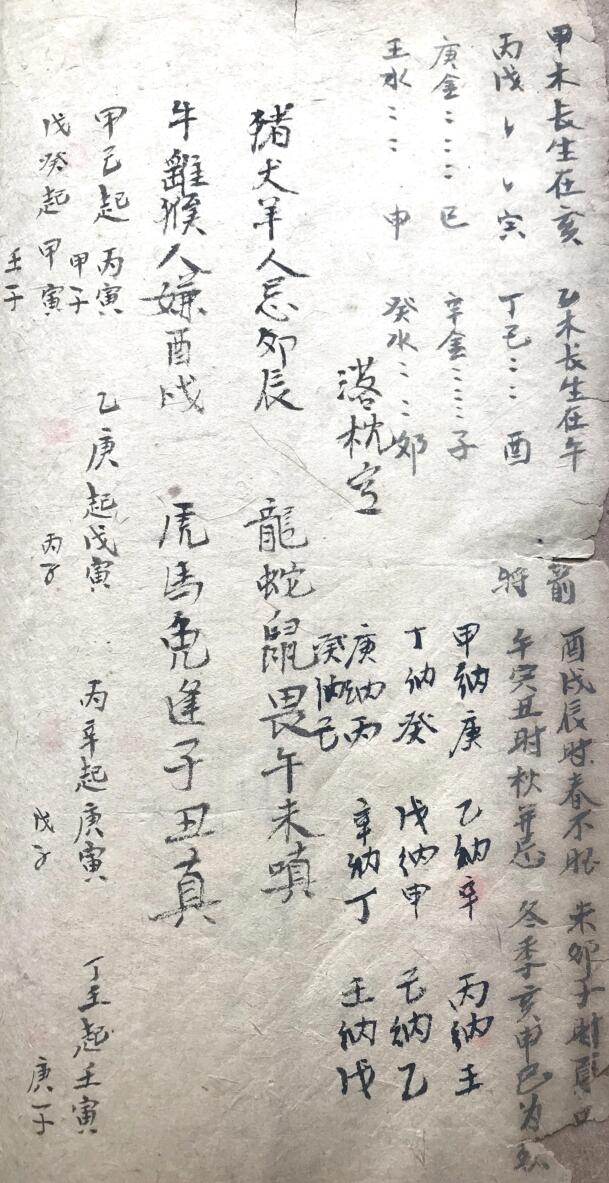 甲木长生在亥　乙木长生在午
丙戊〻〻寅　丁己：：酉
庚金：：：巳　辛金：：：子
壬水：：申　癸水：：卯
箭
将
酉戌辰时春不旺　未卯子时夏
午寅丑时秋并忌　冬季亥申巳为
甲纳庚　乙纳辛　丙纳壬
丁纳癸　戊纳申　己纳乙
庚纳丙　辛纳丁　壬纳戊
癸纳己
落枕空
豬犬羊人忌卯辰　龍蛇鼠畏午未嗔
牛雞猴人嫌酉戌　虎馬兎逢子丑真
甲己起丙寅　乙庚起戊寅　丙辛起庚寅　丁壬起壬寅
甲子　丙子　戊子　庚子
戊癸起甲寅
壬子